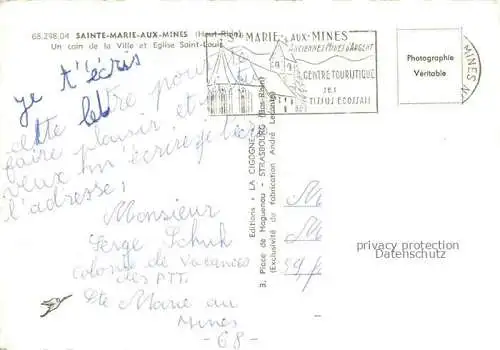 68.298.04 SAINTE-MARIE-AUX-MINES (Haut-Rhin)
Un coin de la Ville et Eglise Saint-Louis
Ste MARIE AUX-MINES
ANCIENNES MINES D'ARGENT
CENTRE TOURISTIQUE
SES
TISSUS ECOSSAIS
Photographie
Véritable
MINES
je t'écris
cette lettre pour te
faire plaisir et
veux m'écrire je
l'adresse,
Monsieur
Serge Schuh
colonie de Vacances
des PTT.
Ste Marie au
Mines
-68-
Editions - LA CIGOGNE
3, Place de Haguenau - STRASBOURG (Bas-Rhin)
(Exclusivité de fabrication André Leconte)
privacy protection
Datenschutz